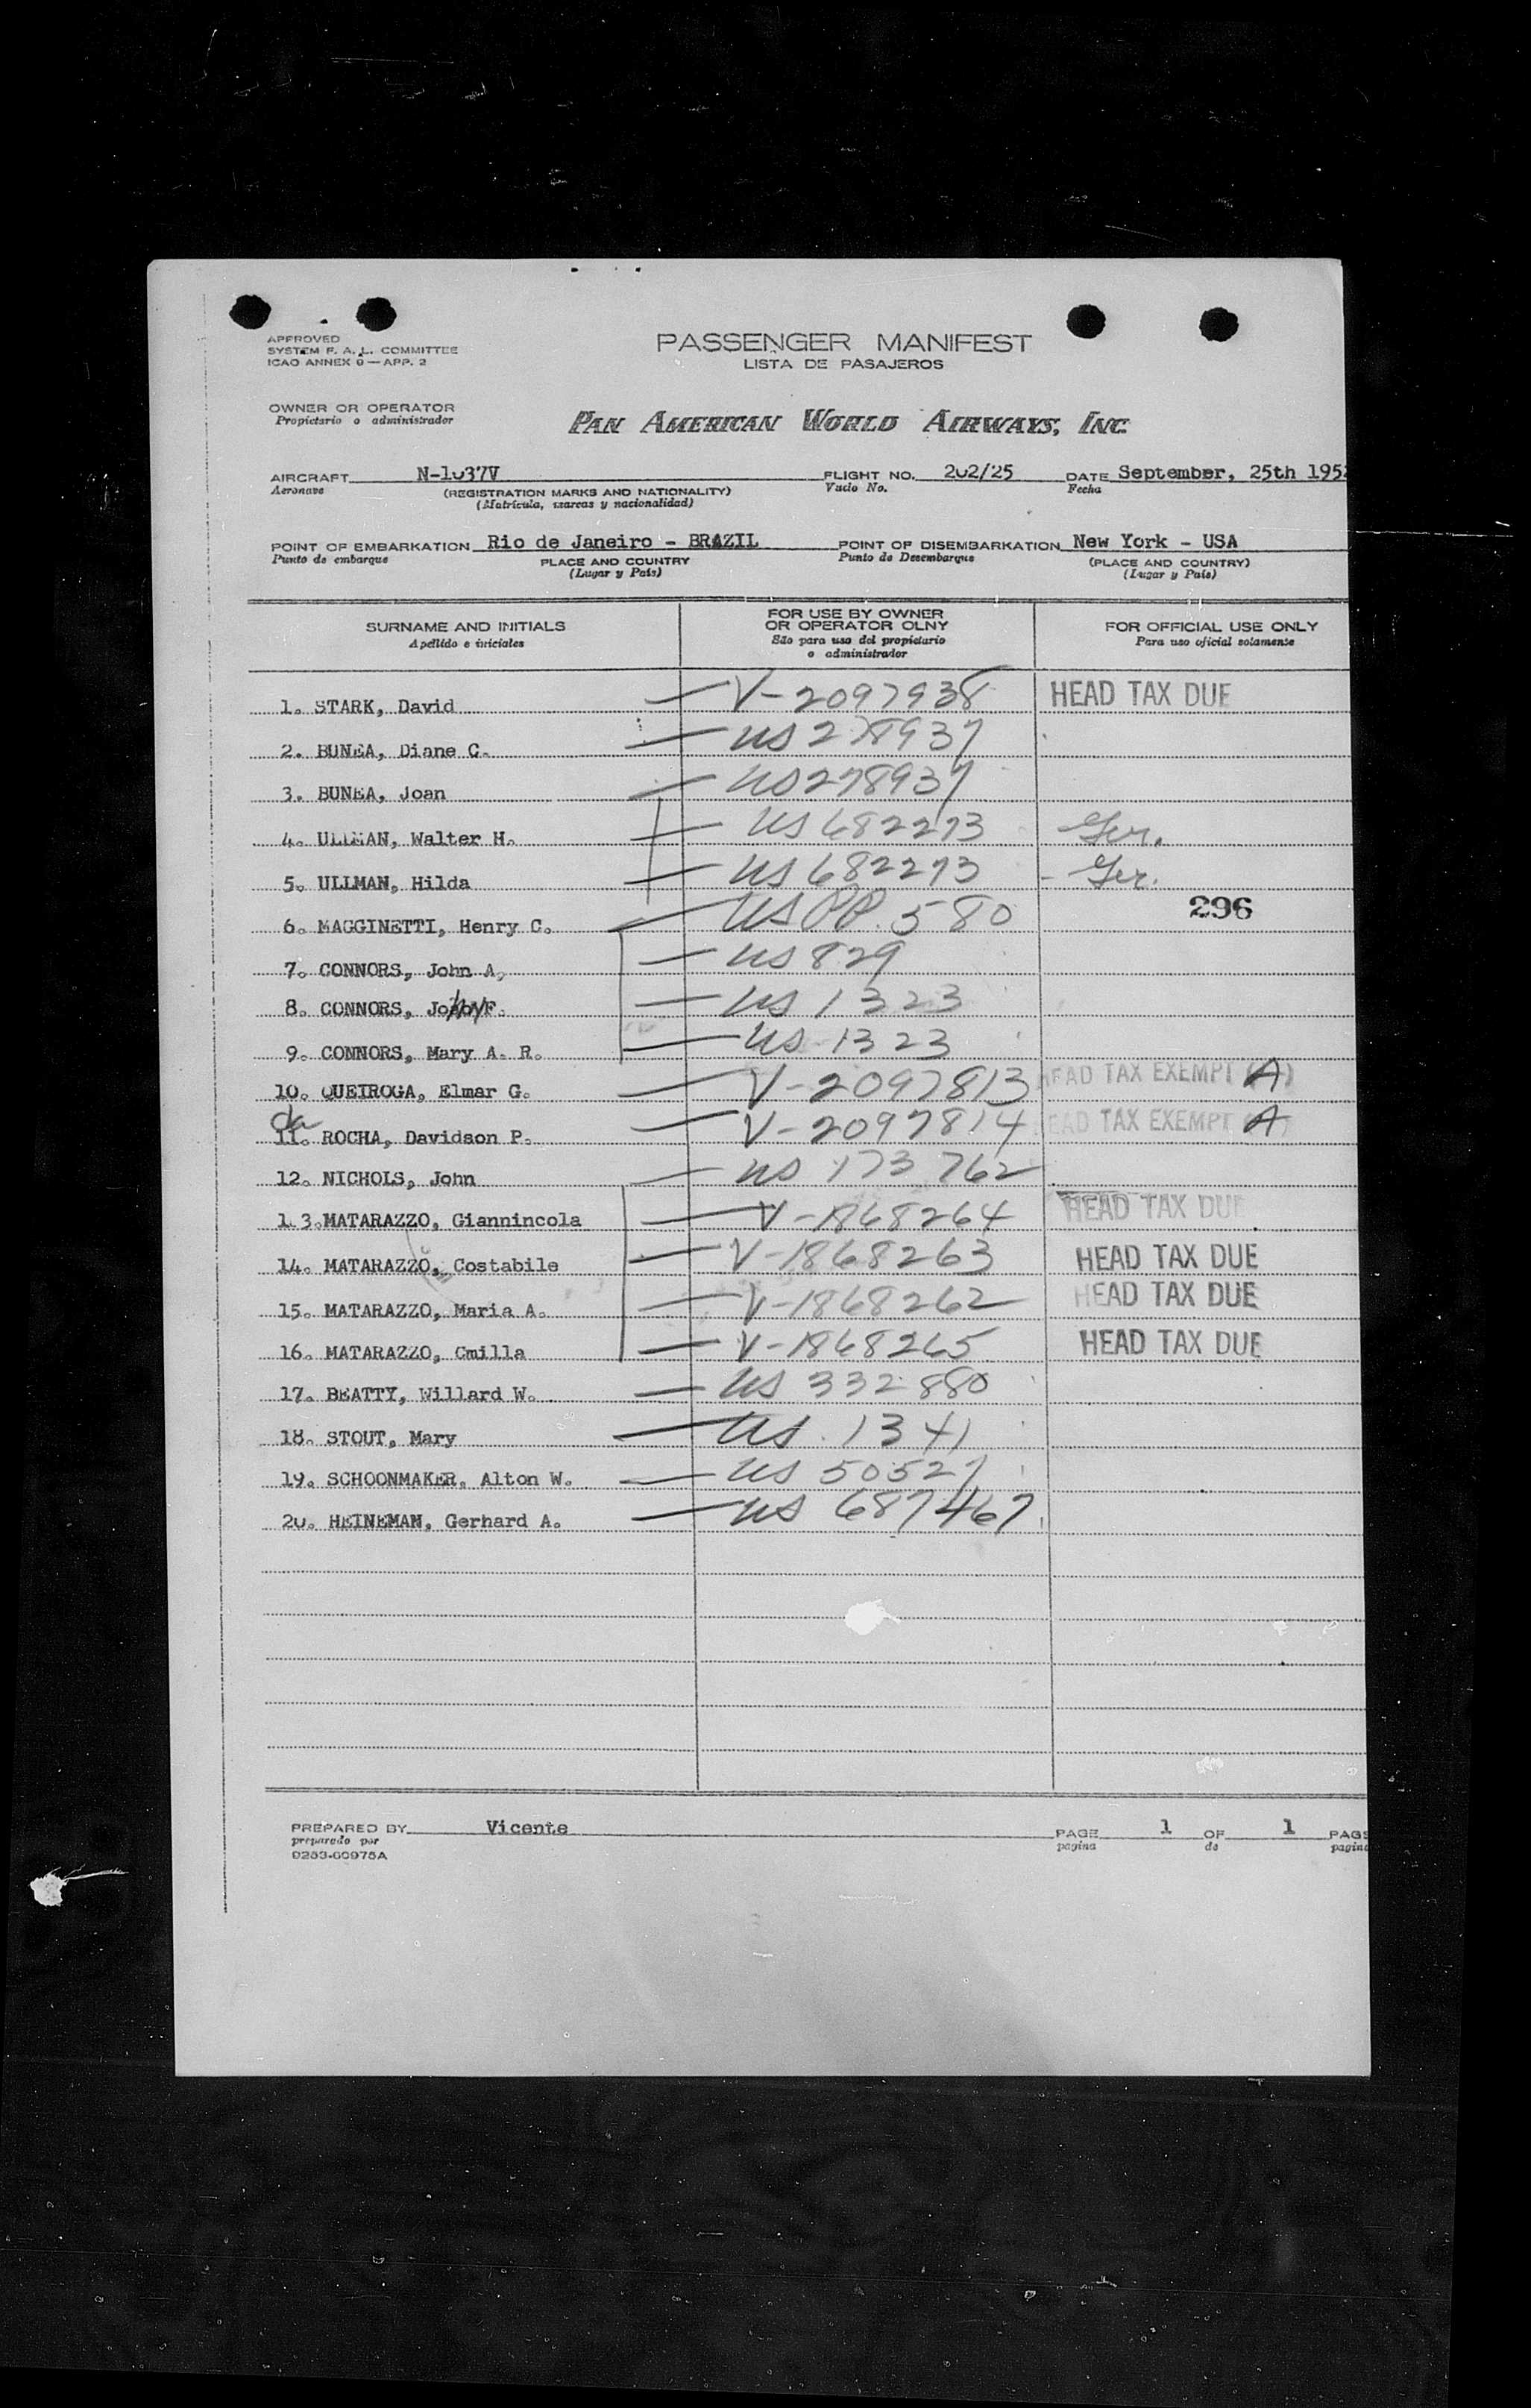 APPROVED
SYSTEM F. A. L. COMMITTEE
ICAO ANNEX 9 — APP. 2
PASSENGER MANIFEST
LISTA DE PASAJEROS
OWNER OR OPERATOR
Propictario o administrador
PAN AMERICAN WORLD AIRWAYS, INC.
AIRCRAFT N-1037V FLIGHT NO. 202/25 DATE September, 25th 1952
Aeronave (REGISTRATION MARKS AND NATIONALITY) Vuclo No. Fecha
(Matrícula, marcas y nacionalidad)
POINT OF EMBARKATION Rio de Janeiro - BRAZIL POINT OF DISEMBARKATION New York - USA
Punto de embarque PLACE AND COUNTRY Punto de Desembarque (PLACE AND COUNTRY)
(Lugar y País) (Lugar y País)
SURNAME AND INITIALS FOR USE BY OWNER OR OPERATOR OLNY FOR OFFICIAL USE ONLY
Apellido e iniciales São para uso del propietario o administrador Para uso oficial solamente
1. STARK, David — V-2097938 HEAD TAX DUE
2. BUNEA, Diane C. — US 278937
3. BUNEA, Joan — US 278937
4. ULLMAN, Walter H. — US 682273 Ger.
5. ULLMAN, Hilda — US 682273 - Ger.
296
6. MAGGINETTI, Henry C. — US PP. 580
7. CONNORS, John A, — US 829
8. CONNORS, F. — US 1323
9. CONNORS, Mary A. R. — US 1323
10. QUEIROGA, Elmar G. — V-2097813 HEAD TAX EXEMPT (A)
da
11. ROCHA, Davidson P. — V-2097814 HEAD TAX EXEMPT A
12. NICHOLS, John — US 173762
13. MATARAZZO, Giannincola — V-1868264 HEAD TAX DUE
14. MATARAZZO, Costabile — V-1868263 HEAD TAX DUE
15. MATARAZZO, Maria A. — V-1868262 HEAD TAX DUE
16. MATARAZZO, Cmilla — V-1868265 HEAD TAX DUE
17. BEATTY, Willard W. — US 332880
18. STOUT, Mary — US. 1341
19. SCHOONMAKER, Alton W. — US 50527
20. HEINEMAN, Gerhard A. — US 687467
PREPARED BY Vicente PAGE 1 OF 1 PAGS
preparado por pagina de pagina
0253-60975A